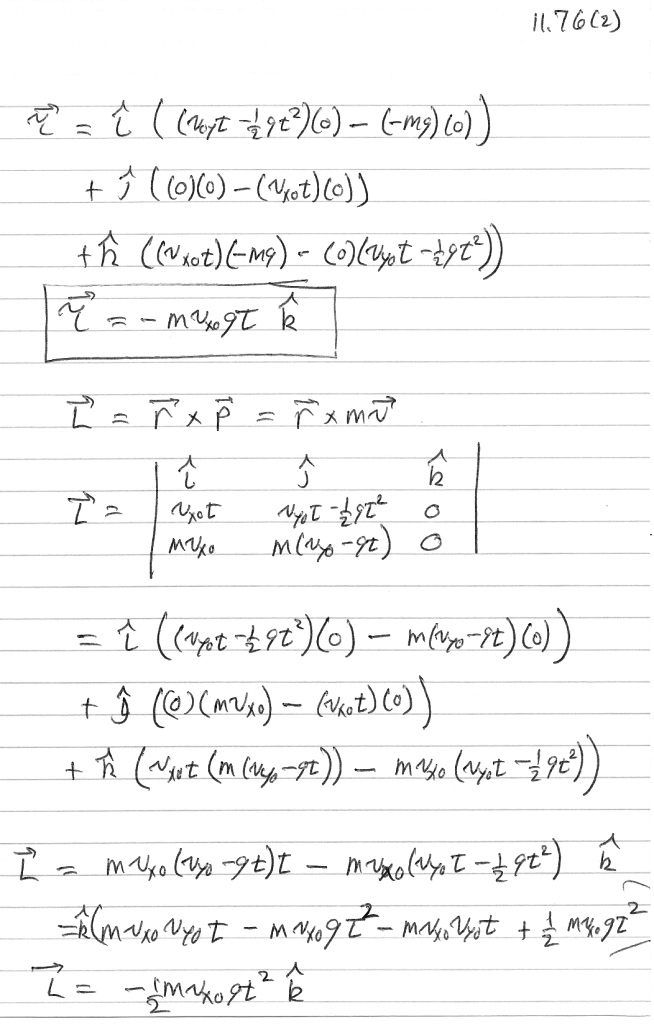 11.76(2)
τ⃗ = î ((v₀yt − ½gt²)(0) − (−mg)(0))
+ ĵ ((0)(0) − (vx₀t)(0))
+ k̂ ((vx₀t)(−mg) − (0)(vy₀t − ½gt²))
τ⃗ = −mvx₀gt k̂
L⃗ = r⃗ × p⃗ = r⃗ × mv⃗
î ĵ k̂
L⃗ = | vx₀t vy₀t − ½gt² 0 |
mvx₀ m(vy₀ − gt) 0
= î ((vy₀t − ½gt²)(0) − m(vy₀ − gt)(0))
+ ĵ ((0)(mvx₀) − (vx₀t)(0))
+ k̂ (vx₀t(m(vy₀ − gt)) − mvx₀(vy₀t − ½gt²))
L⃗ = mvx₀(vy₀ − gt)t − mvx₀(vy₀t − ½gt²) k̂
= k̂(mvx₀vy₀t − mvx₀gt² − mvx₀vy₀t + ½mvx₀gt²
L⃗ = −½mvx₀gt² k̂